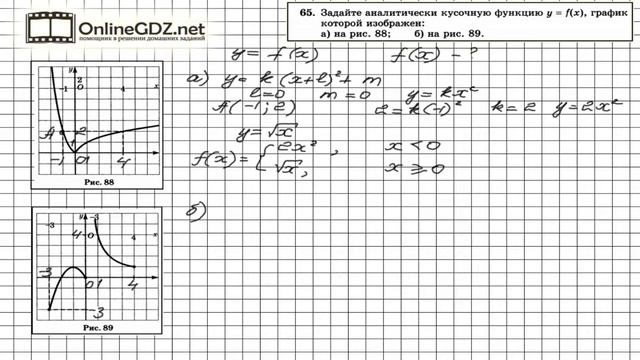 OnlineGDZ.net
помощник в решении домашних заданий
65. Задайте аналитически кусочную функцию y = f(x), график
которой изображен:
а) на рис. 88; б) на рис. 89.
y = f(x) f(x) - ?
а) y = k(x+l)² + m
l=0 m=0 y=kx²
A(-1; 2) 2=k(-1)² k=2 y=2x²
y=√x
f(x) = { 2x², x < 0
√x, x ≥ 0
б)
y
2
-1 0 4 x
A 2
-1 0 1 4
Рис. 88
y -3
-3 x
4 0 4
-3 0 1 4
-3
Рис. 89